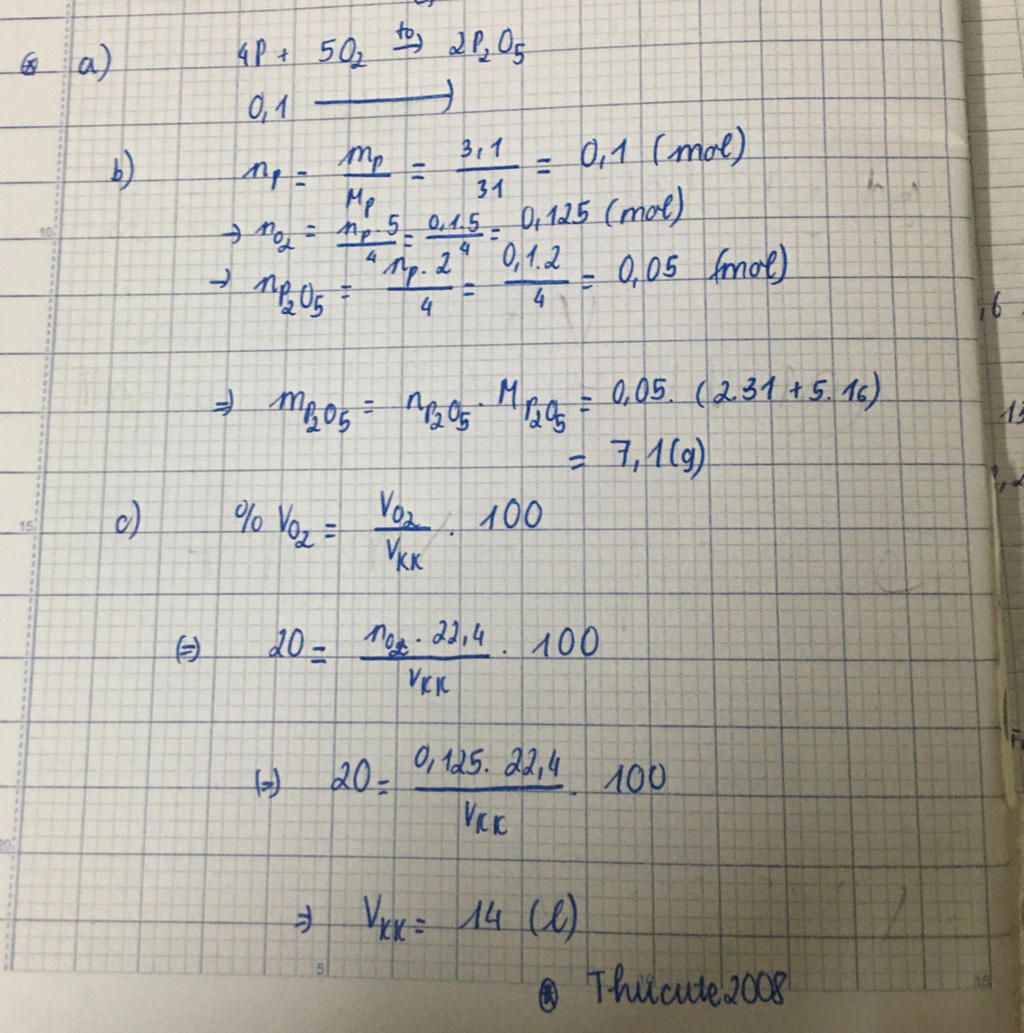 a) 4P + 5O₂ t⁰→ 2P₂O₅
0,1 →
b) nP = mP/MP = 3,1/31 = 0,1 (mol)
→ nO₂ = nP.5/4 = 0,1.5/4 = 0,125 (mol)
→ nP₂O₅ = nP.2/4 = 0,1.2/4 = 0,05 (mol)
⇒ mP₂O₅ = nP₂O₅ . MP₂O₅ = 0,05. (2.31 + 5.16)
= 7,1 (g)
c) % VO₂ = VO₂/VKK . 100
(=) 20 = nO₂ . 22,4/VKK . 100
(=) 20 = 0,125. 22,4/VKK . 100
⇒ VKK = 14 (l)
Thucute2008
10
15
20
5
15